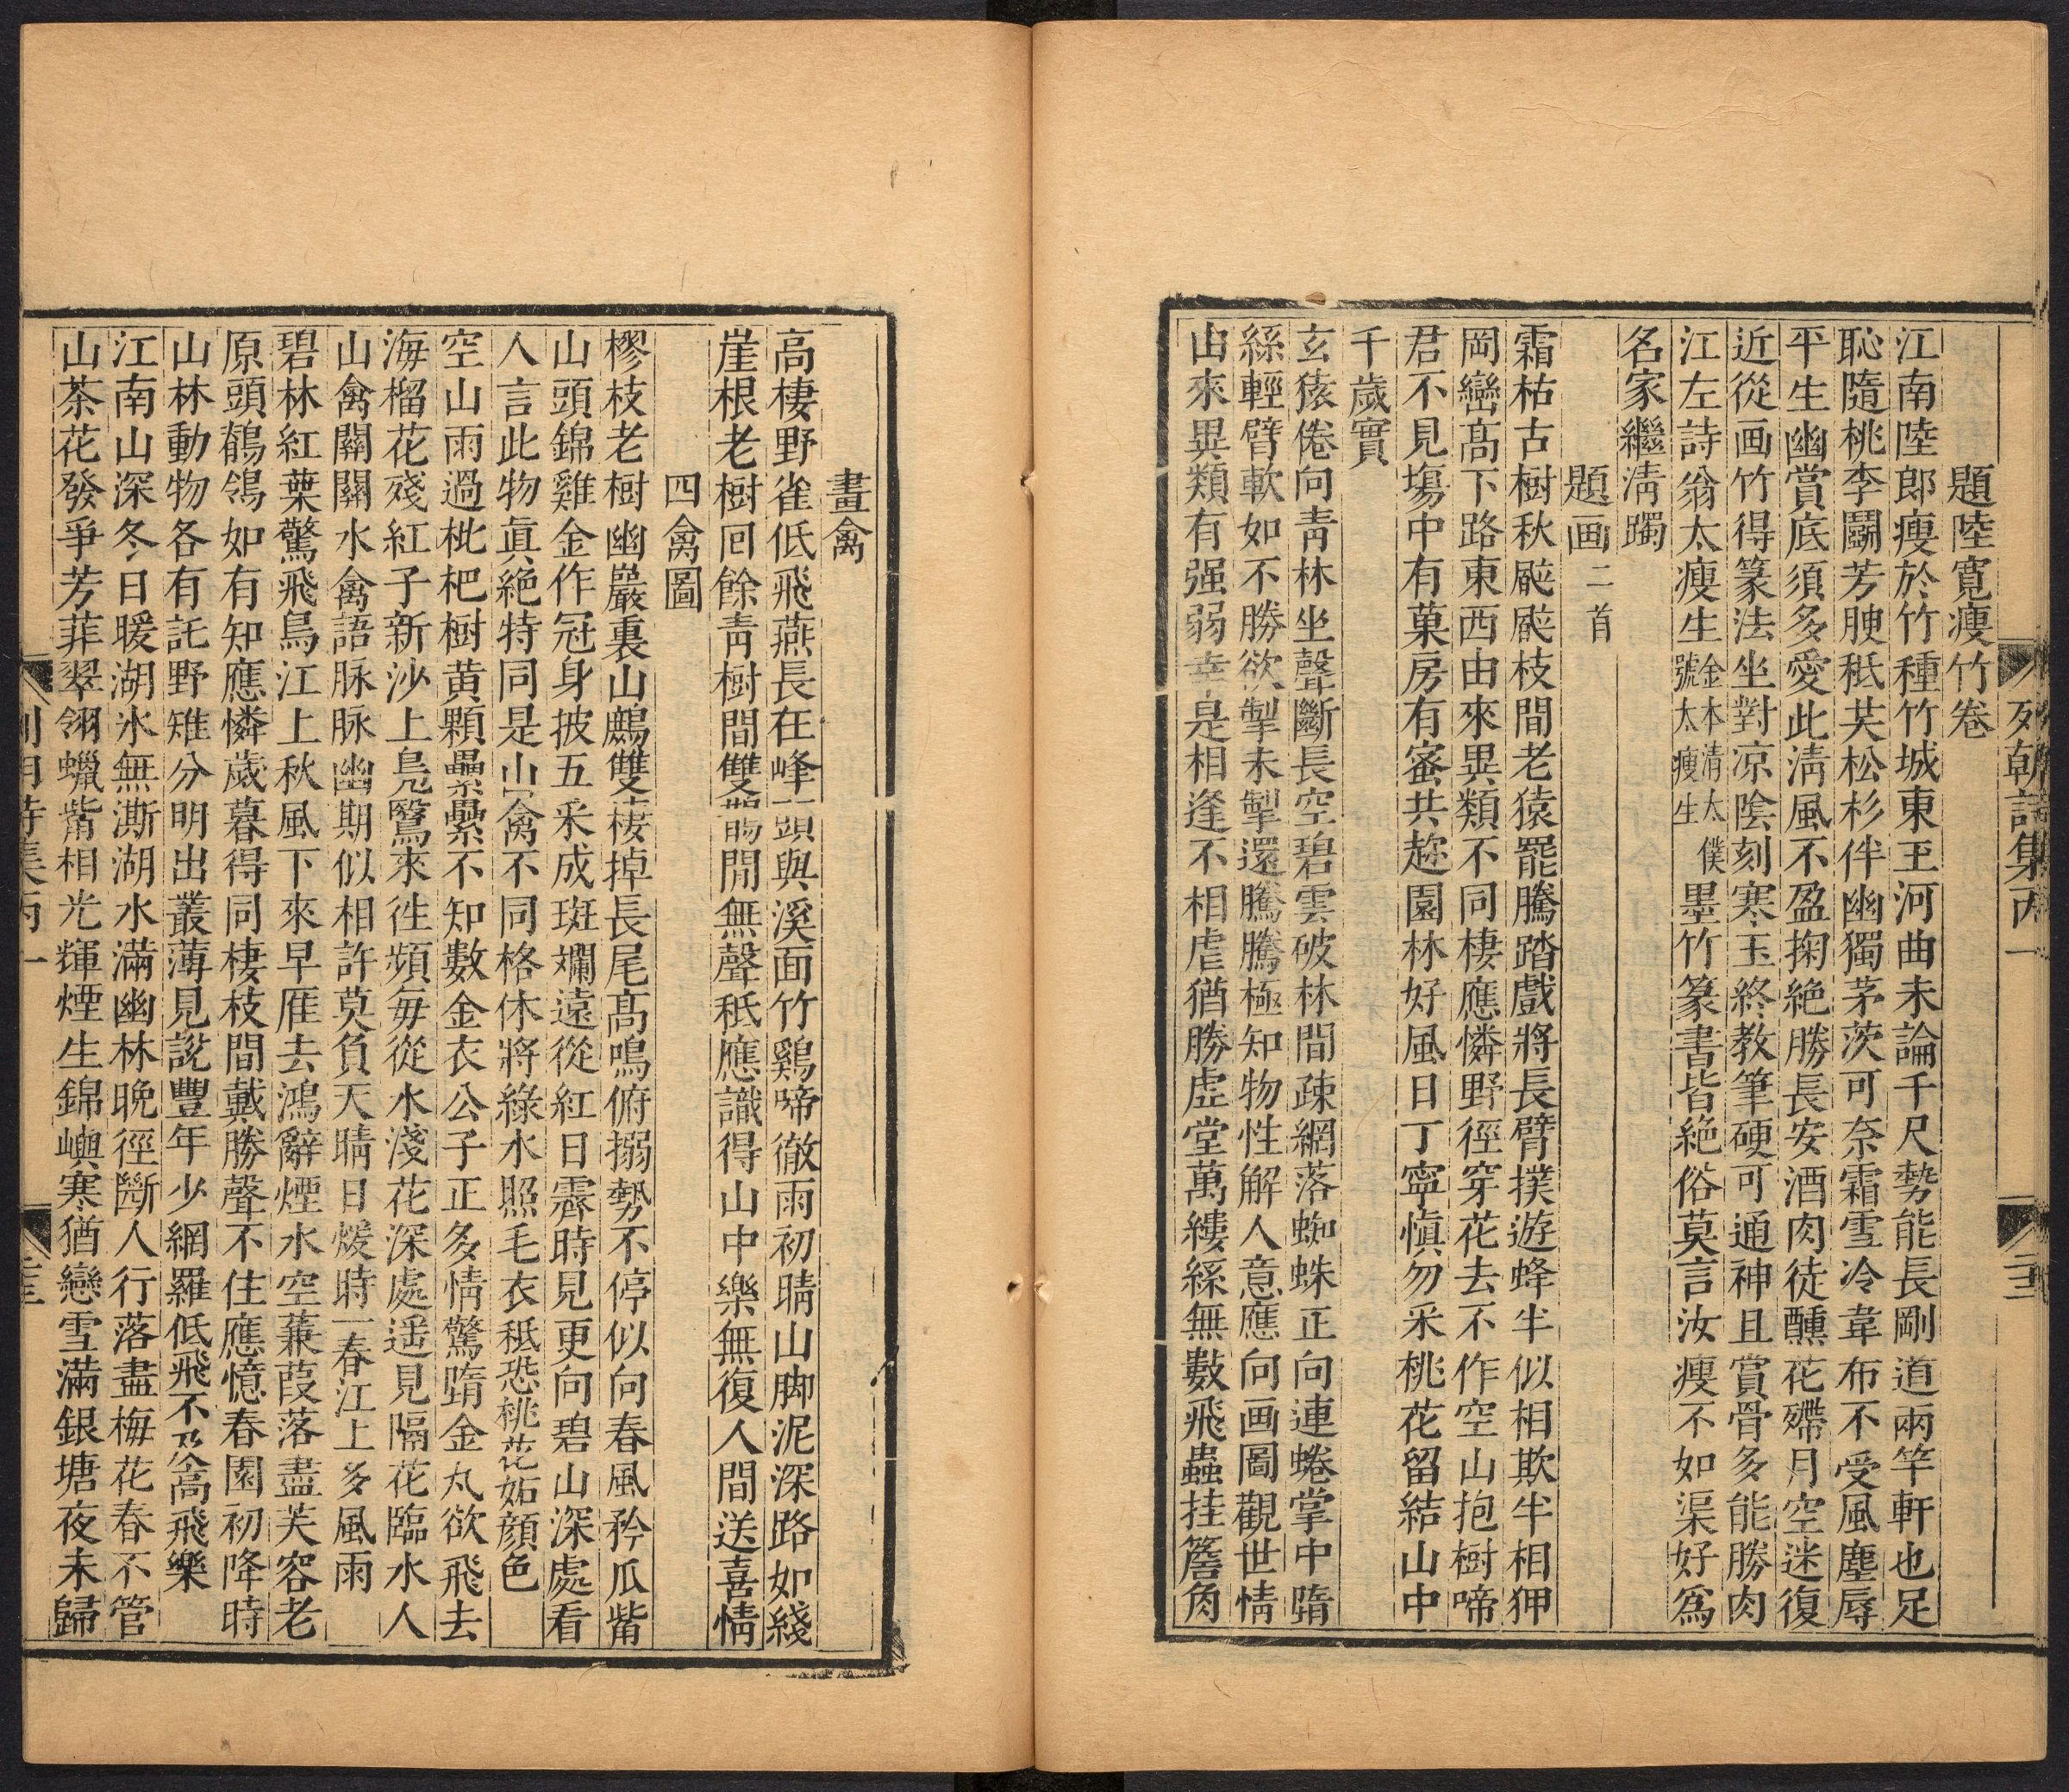 列朝詩集丙一
二三
題陸寬瘦竹卷
江南陸郎瘦於竹種竹城東玉河曲未論千尺勢能長剛道兩竿軒也足
恥隨桃李鬭芳腴秪芙松杉伴幽獨茅茨可奈霜雪冷韋布不受風塵辱
平生幽賞底須多愛此淸風不盈掬絶勝長安酒肉徒醺花殢月空迷復
近從画竹得篆法坐對凉陰刻寒玉終教筆硬可通神且賞骨多能勝肉
江左詩翁太瘦生金本淸太僕號太瘦生墨竹篆書皆絶俗莫言汝瘦不如渠好爲
名家繼淸躅
題画二首
霜枯古樹秋厭厭枝間老猿罷騰踏戲將長臂撲遊蜂半似相欺半相狎
岡巒髙下路東西由來異類不同棲應憐野徑穿花去不作空山抱樹啼
君不見塲中有菓房有蜜共趂園林好風日丁寧愼勿采桃花留結山中
千歲實
玄猿倦向靑林坐聲斷長空碧雲破林間疎網落蜘蛛正向連蜷掌中墮
絲輕臂軟如不勝欲掣未掣還騰騰極知物性解人意應向画圖觀世情
由來異類有强弱幸是相逢不相虐猶勝虛堂萬縷絲無數飛蟲挂簷角
畫禽
高棲野雀低飛燕長在峰頭與溪面竹鷄啼徹雨初晴山脚泥深路如綫
崖根老樹囘餘靑樹間雙鵲閒無聲秪應識得山中樂無復人間送喜情
四禽圖
樛枝老樹幽巖裏山鷓雙棲掉長尾髙鳴俯搦勢不停似向春風矜瓜觜
山頭錦雞金作冠身披五采成斑斕遠從紅日霽時見更向碧山深處看
人言此物眞絶特同是山禽不同格休將綠水照毛衣秪恐桃花妬顔色
空山雨過枇杷樹黄顆纍纍不知數金衣公子正多情驚墮金丸欲飛去
海榴花殘紅子新沙上鳧鷖來往頻每從水淺花深處遥見隔花臨水人
山禽關關水禽語脉脉幽期似相許莫負天晴日煖時一春江上多風雨
碧林紅葉驚飛鳥江上秋風下來早雁去鴻辭煙水空蒹葭落盡芙容老
原頭鶺鴒如有知應憐歲暮得同棲枝間戴勝聲不住應憶春園初降時
山林動物各有託野雉分明出叢薄見說豐年少網羅低飛不及高飛樂
江南山深冬日暖湖氷無澌湖水滿幽林晚徑斷人行落盡梅花春不管
山茶花發爭芳菲翠翎蠟觜相光輝煙生錦嶼寒猶戀雪滿銀塘夜未歸
列朝詩集丙一